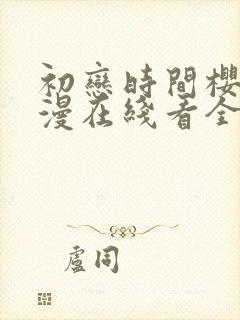 初戀時間櫻
漫在綫看全
盧同